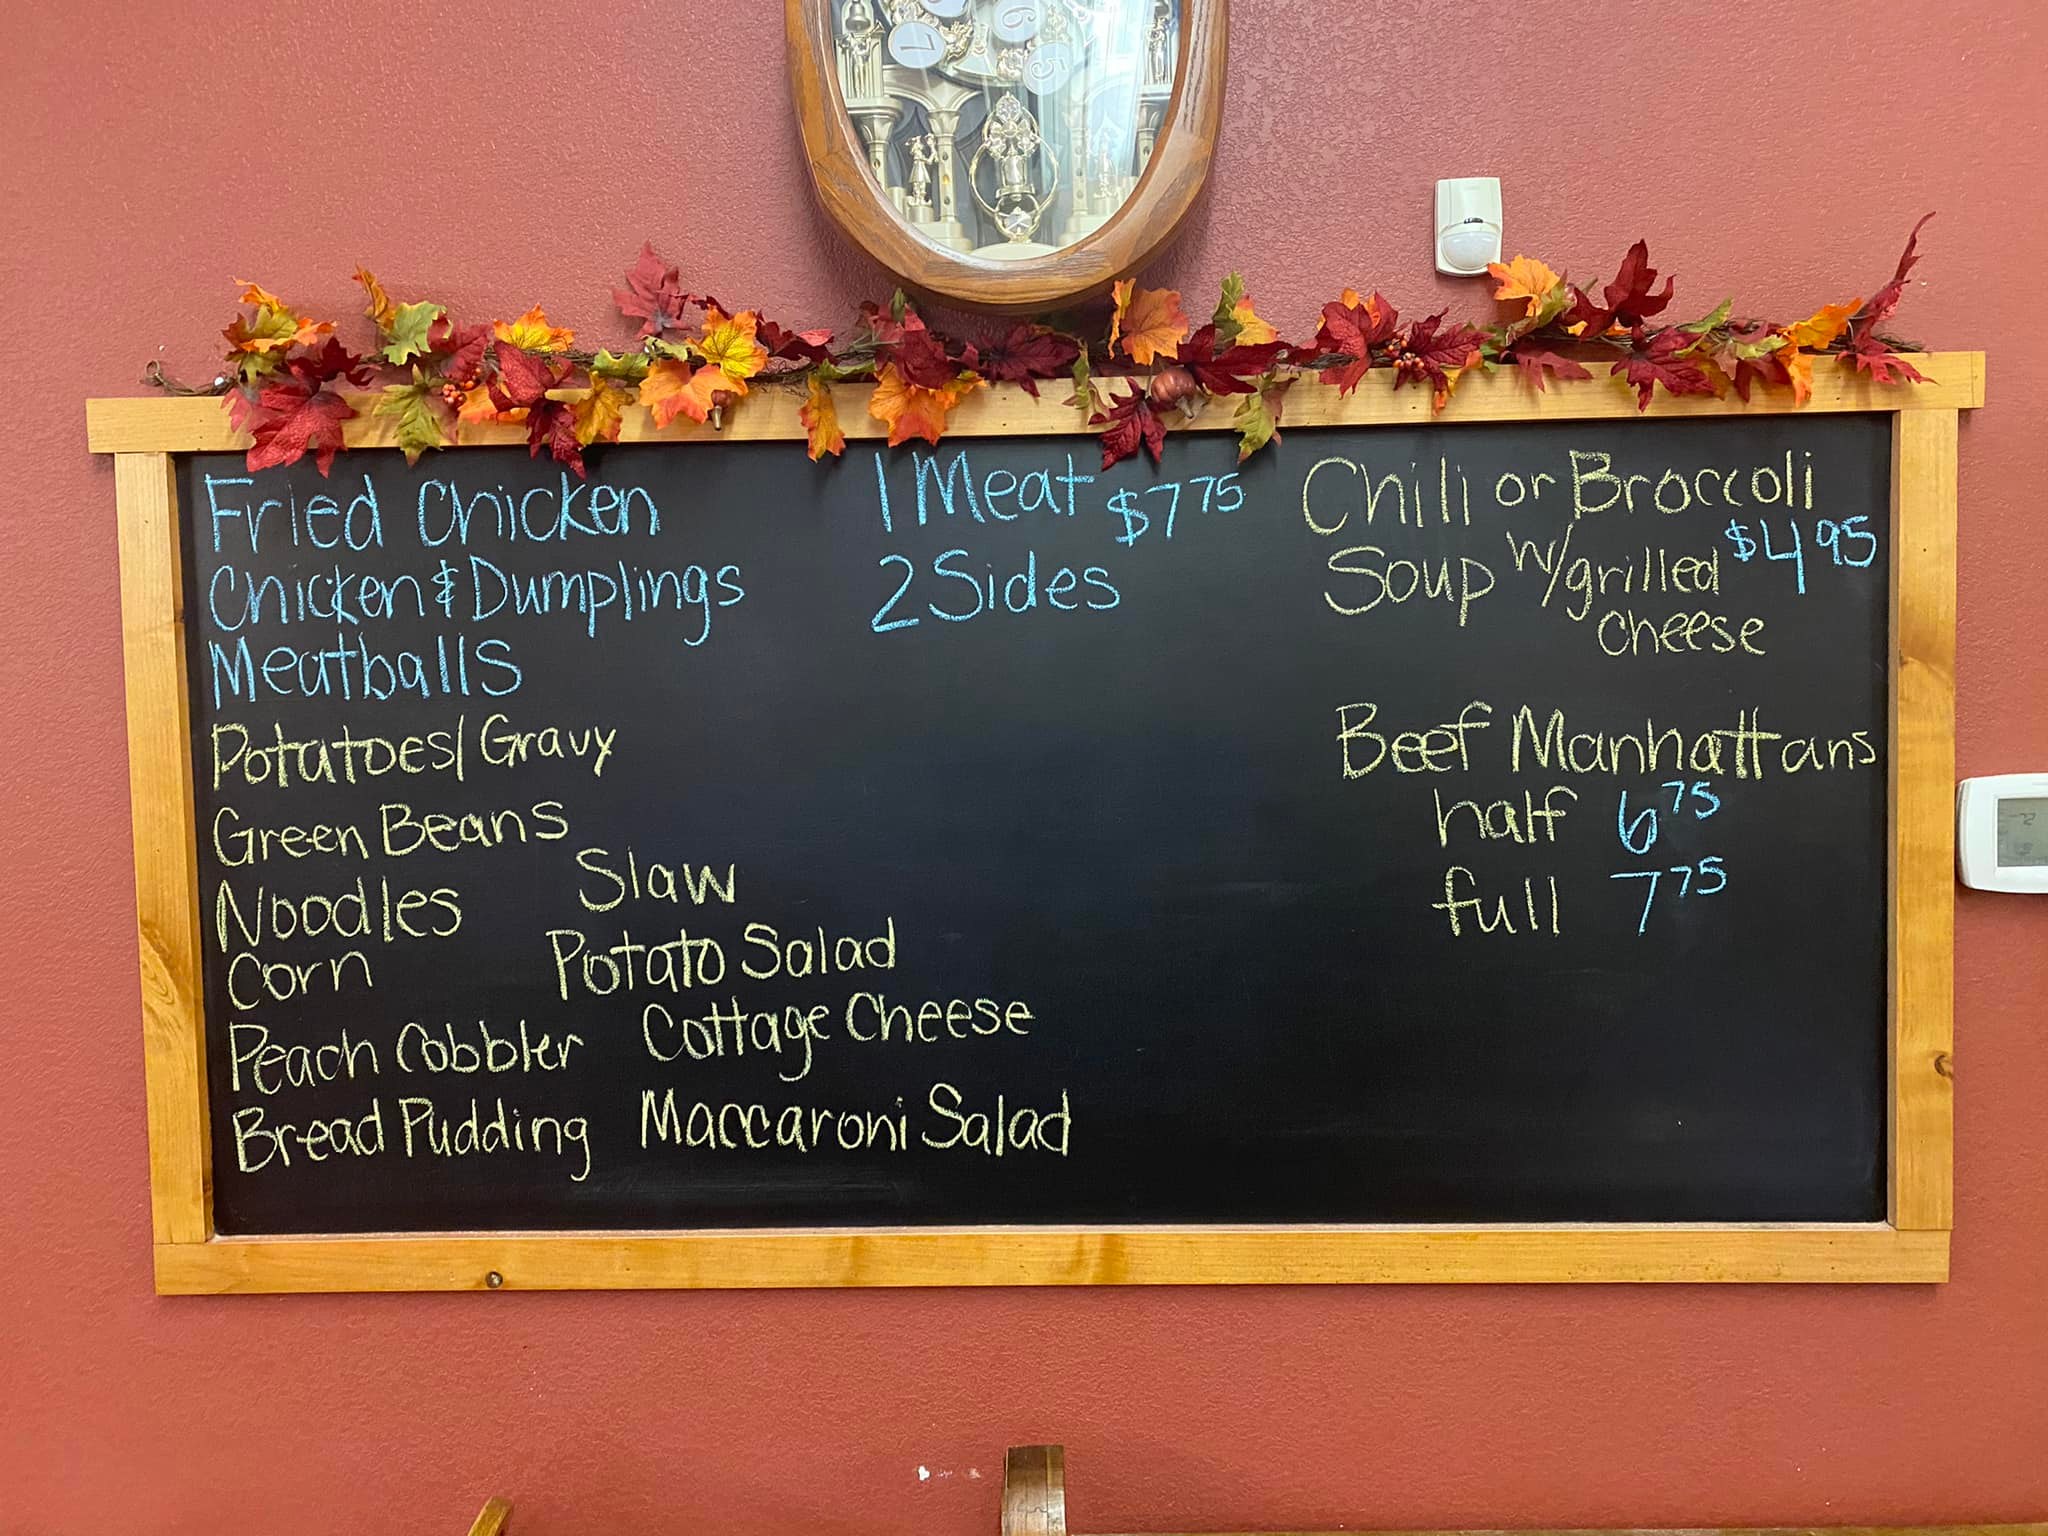 Fried Chicken
Chicken & Dumplings
Meatballs
Potatoes/Gravy
Green Beans
Noodles
Corn
Peach Cobbler
Bread Pudding
Slaw
Potato Salad
Cottage Cheese
Maccaroni Salad
1 Meat $7 75
2 Sides
Chili or Broccoli
Soup w/grilled $4 95
cheese
Beef Manhattans
half 6 75
full 7 75
7
6
5